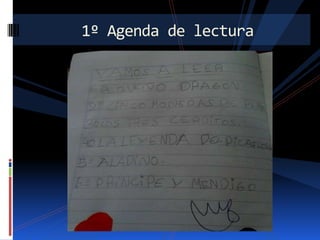 1º Agenda de lectura
VAMOS A LEER
DRAGON
2º CINCO MONEDAS DE
3º LOS TRES CERDITOS.
4º LA LEYENDA DE
5º ALADINO.
6º PRINCIPE Y MENDIGO